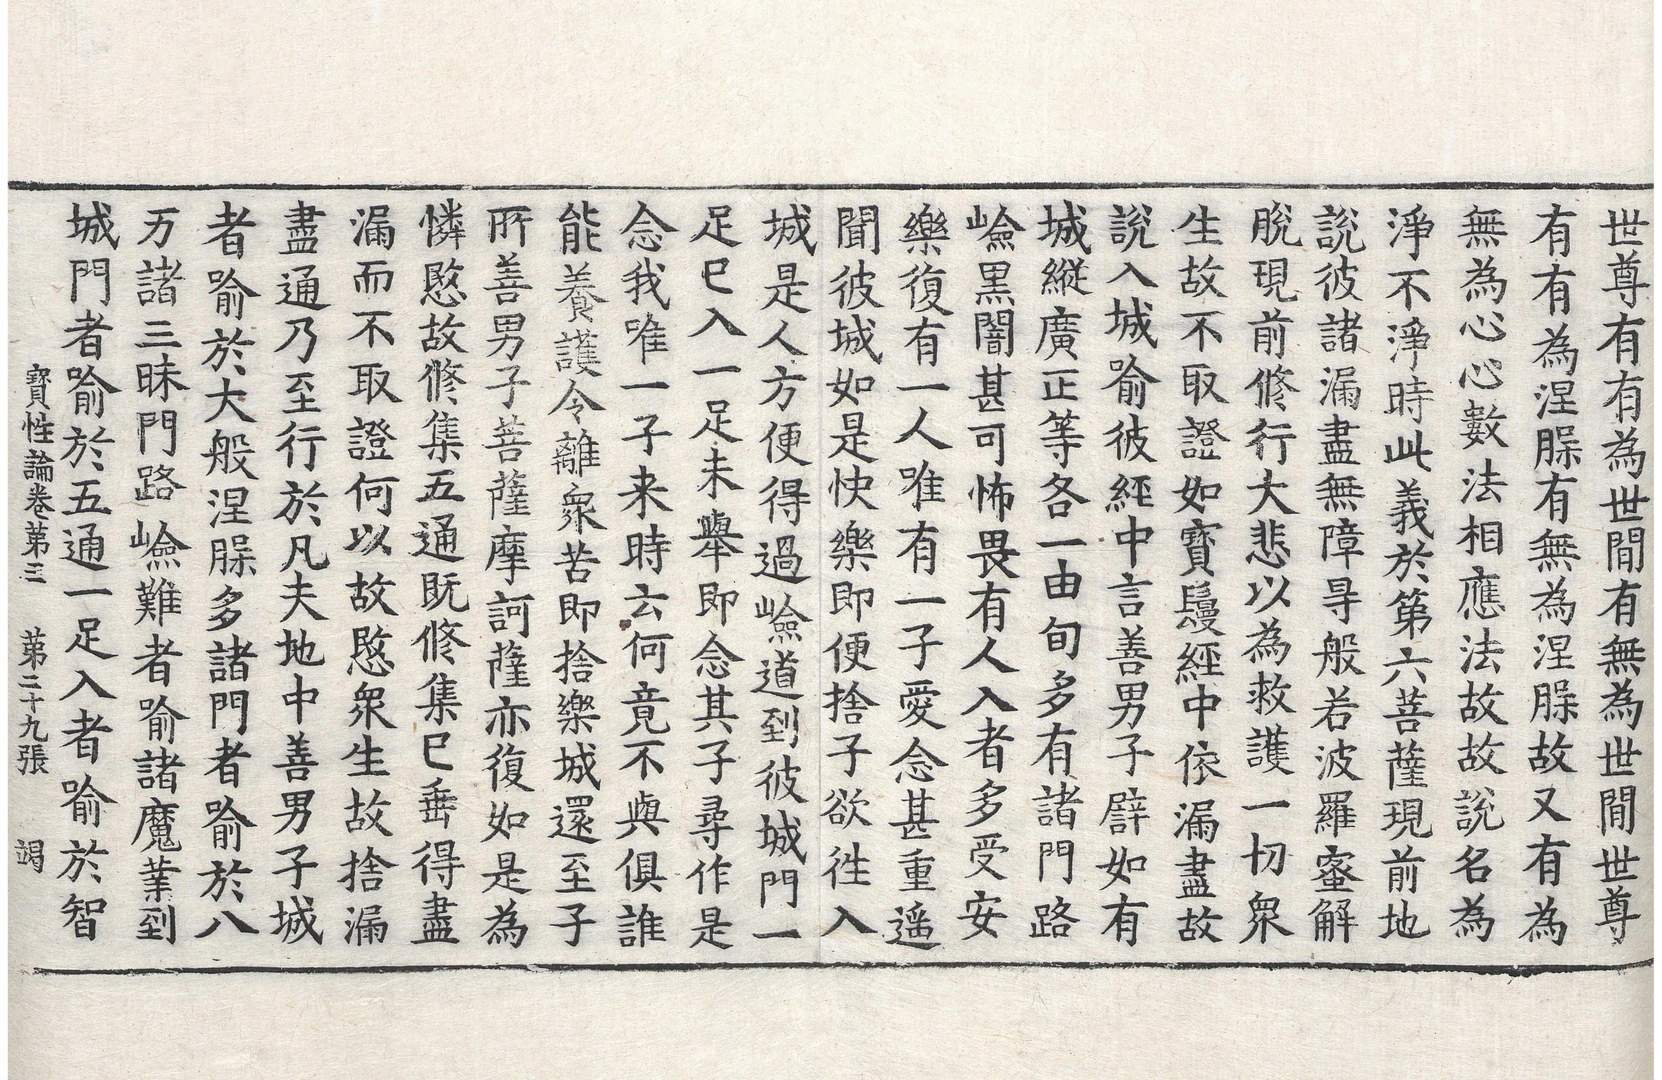 世尊有有為世間有無為世間世尊
有有為涅脲有無為涅脲故又有為
無為心心數法相應法故故說名為
淨不淨時此義於第六菩薩現前地
說彼諸漏盡無障㝵般若波羅蜜解
脫現前修行大悲以為救護一切衆
生故不取證如寶鬘經中依漏盡故
說入城喻彼經中言善男子譬如有
城縱廣正等各一由旬多有諸門路
嶮黑闇甚可怖畏有人入者多受安
樂復有一人唯有一子愛念甚重遥
聞彼城如是快樂即便捨子欲徃入
城是人方便得過嶮道到彼城門一
足已入一足未舉即念其子尋作是
念我唯一子来時云何竟不與俱誰
能養護令離衆苦即捨樂城還至子
所善男子菩薩摩訶薩亦復如是為
憐愍故修集五通既修集已垂得盡
漏而不取證何以故愍衆生故捨漏
盡通乃至行於凡夫地中善男子城
者喻於大般涅脲多諸門者喻於八
万諸三昧門路嶮難者喻諸魔業到
城門者喻於五通一足入者喻於智
寶性論卷第三 第二十九張 竭